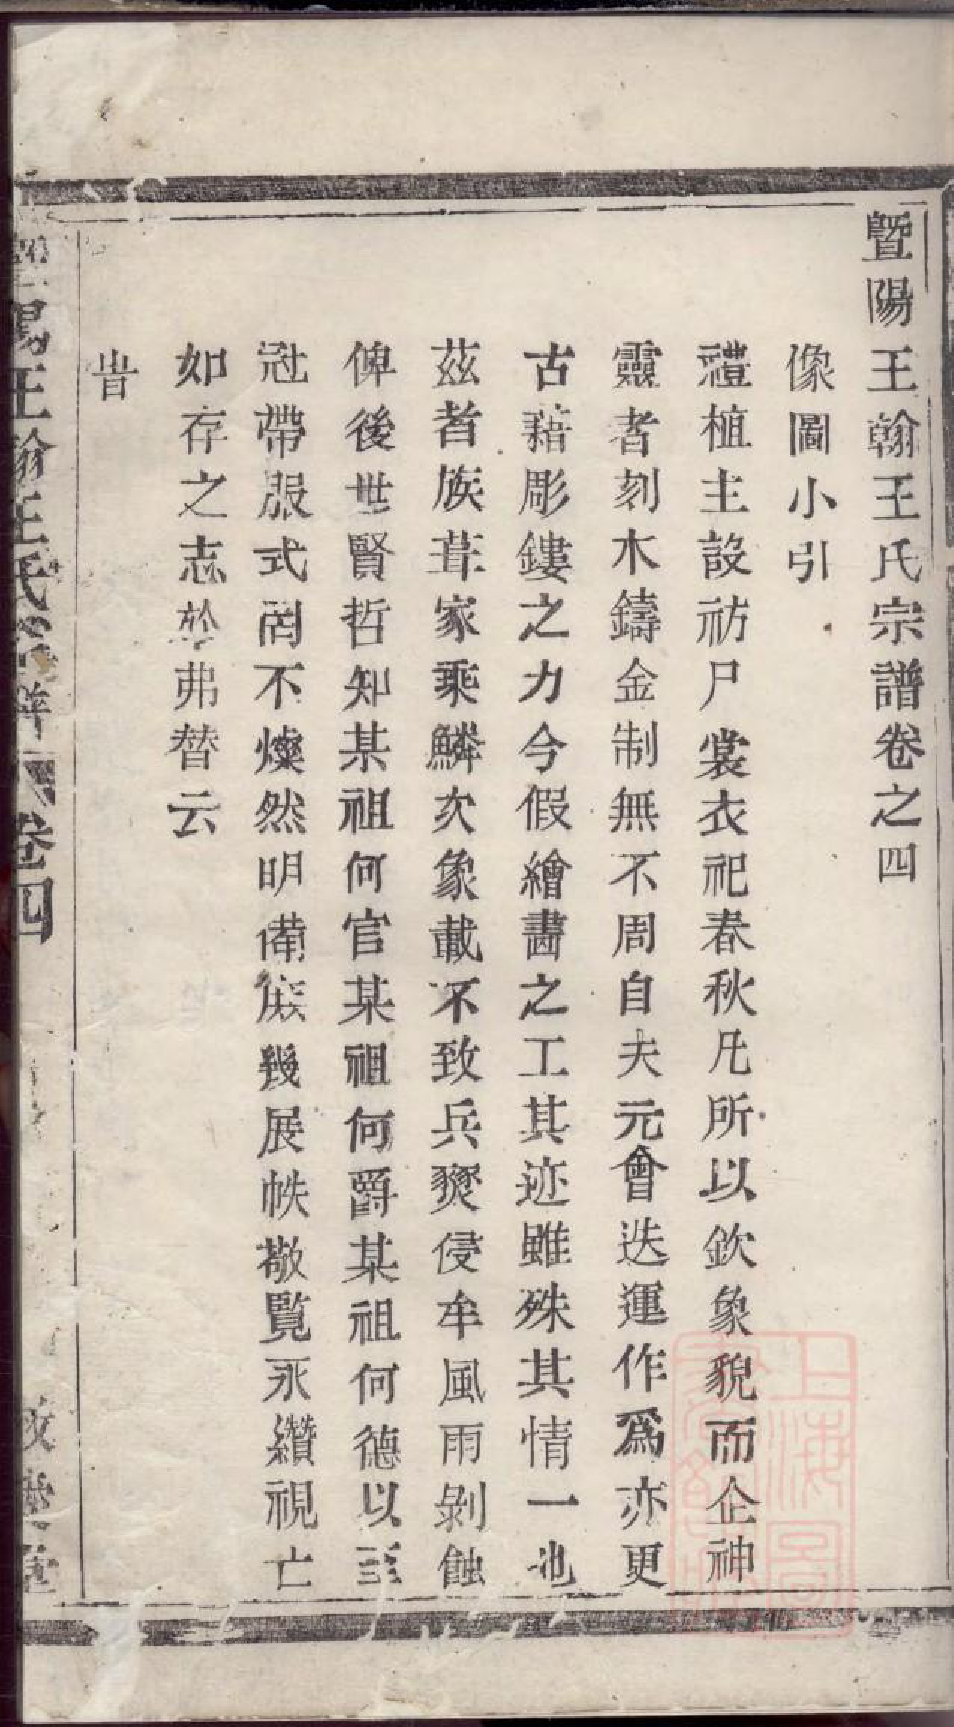 暨陽王翰王氏宗譜卷之四
像圖小引
禮植主設祊尸裳衣祀春秋凡所以欽象貌而企神
靈者刻木鑄金制無不周自夫元會迭運作爲亦更
古藉彫鏤之力今假繪畵之工其迹雖殊其情一也
茲者族葺家乘鱗次象載不致兵燹侵牟風雨剝蝕
俾後世賢哲知某祖何官某祖何爵某祖何德以至
冠帶服式罔不燦然明備庶幾展帙敬覧永纘視亡
如存之志於弗替云
旹
暨陽王翰王氏宗譜 卷四 敦堂
上海圖書館藏